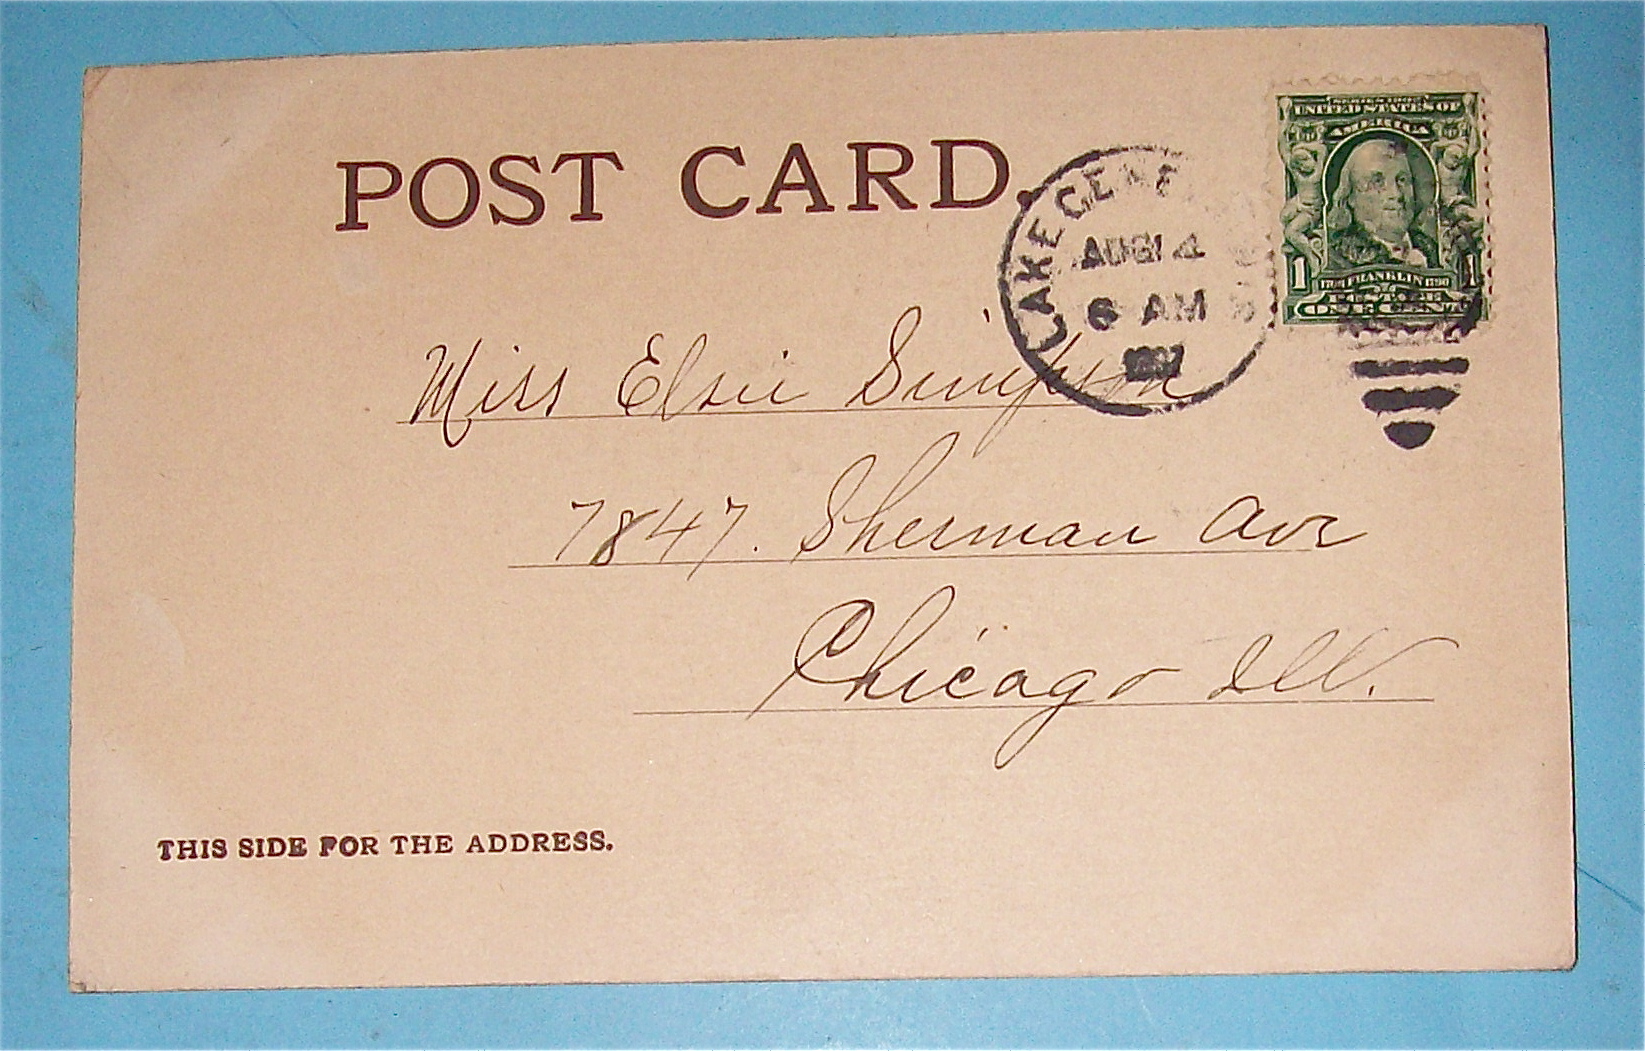 POST CARD.
LAKE GENEVA
AUG 14
6 AM
1907
SERIES 1902
UNITED STATES OF
AMERICA
1 1706 FRANKLIN 1790 1
POSTAGE
ONE CENT
Miss Elsie Simpson
7847. Sherman Ave
Chicago Ill.
THIS SIDE FOR THE ADDRESS.